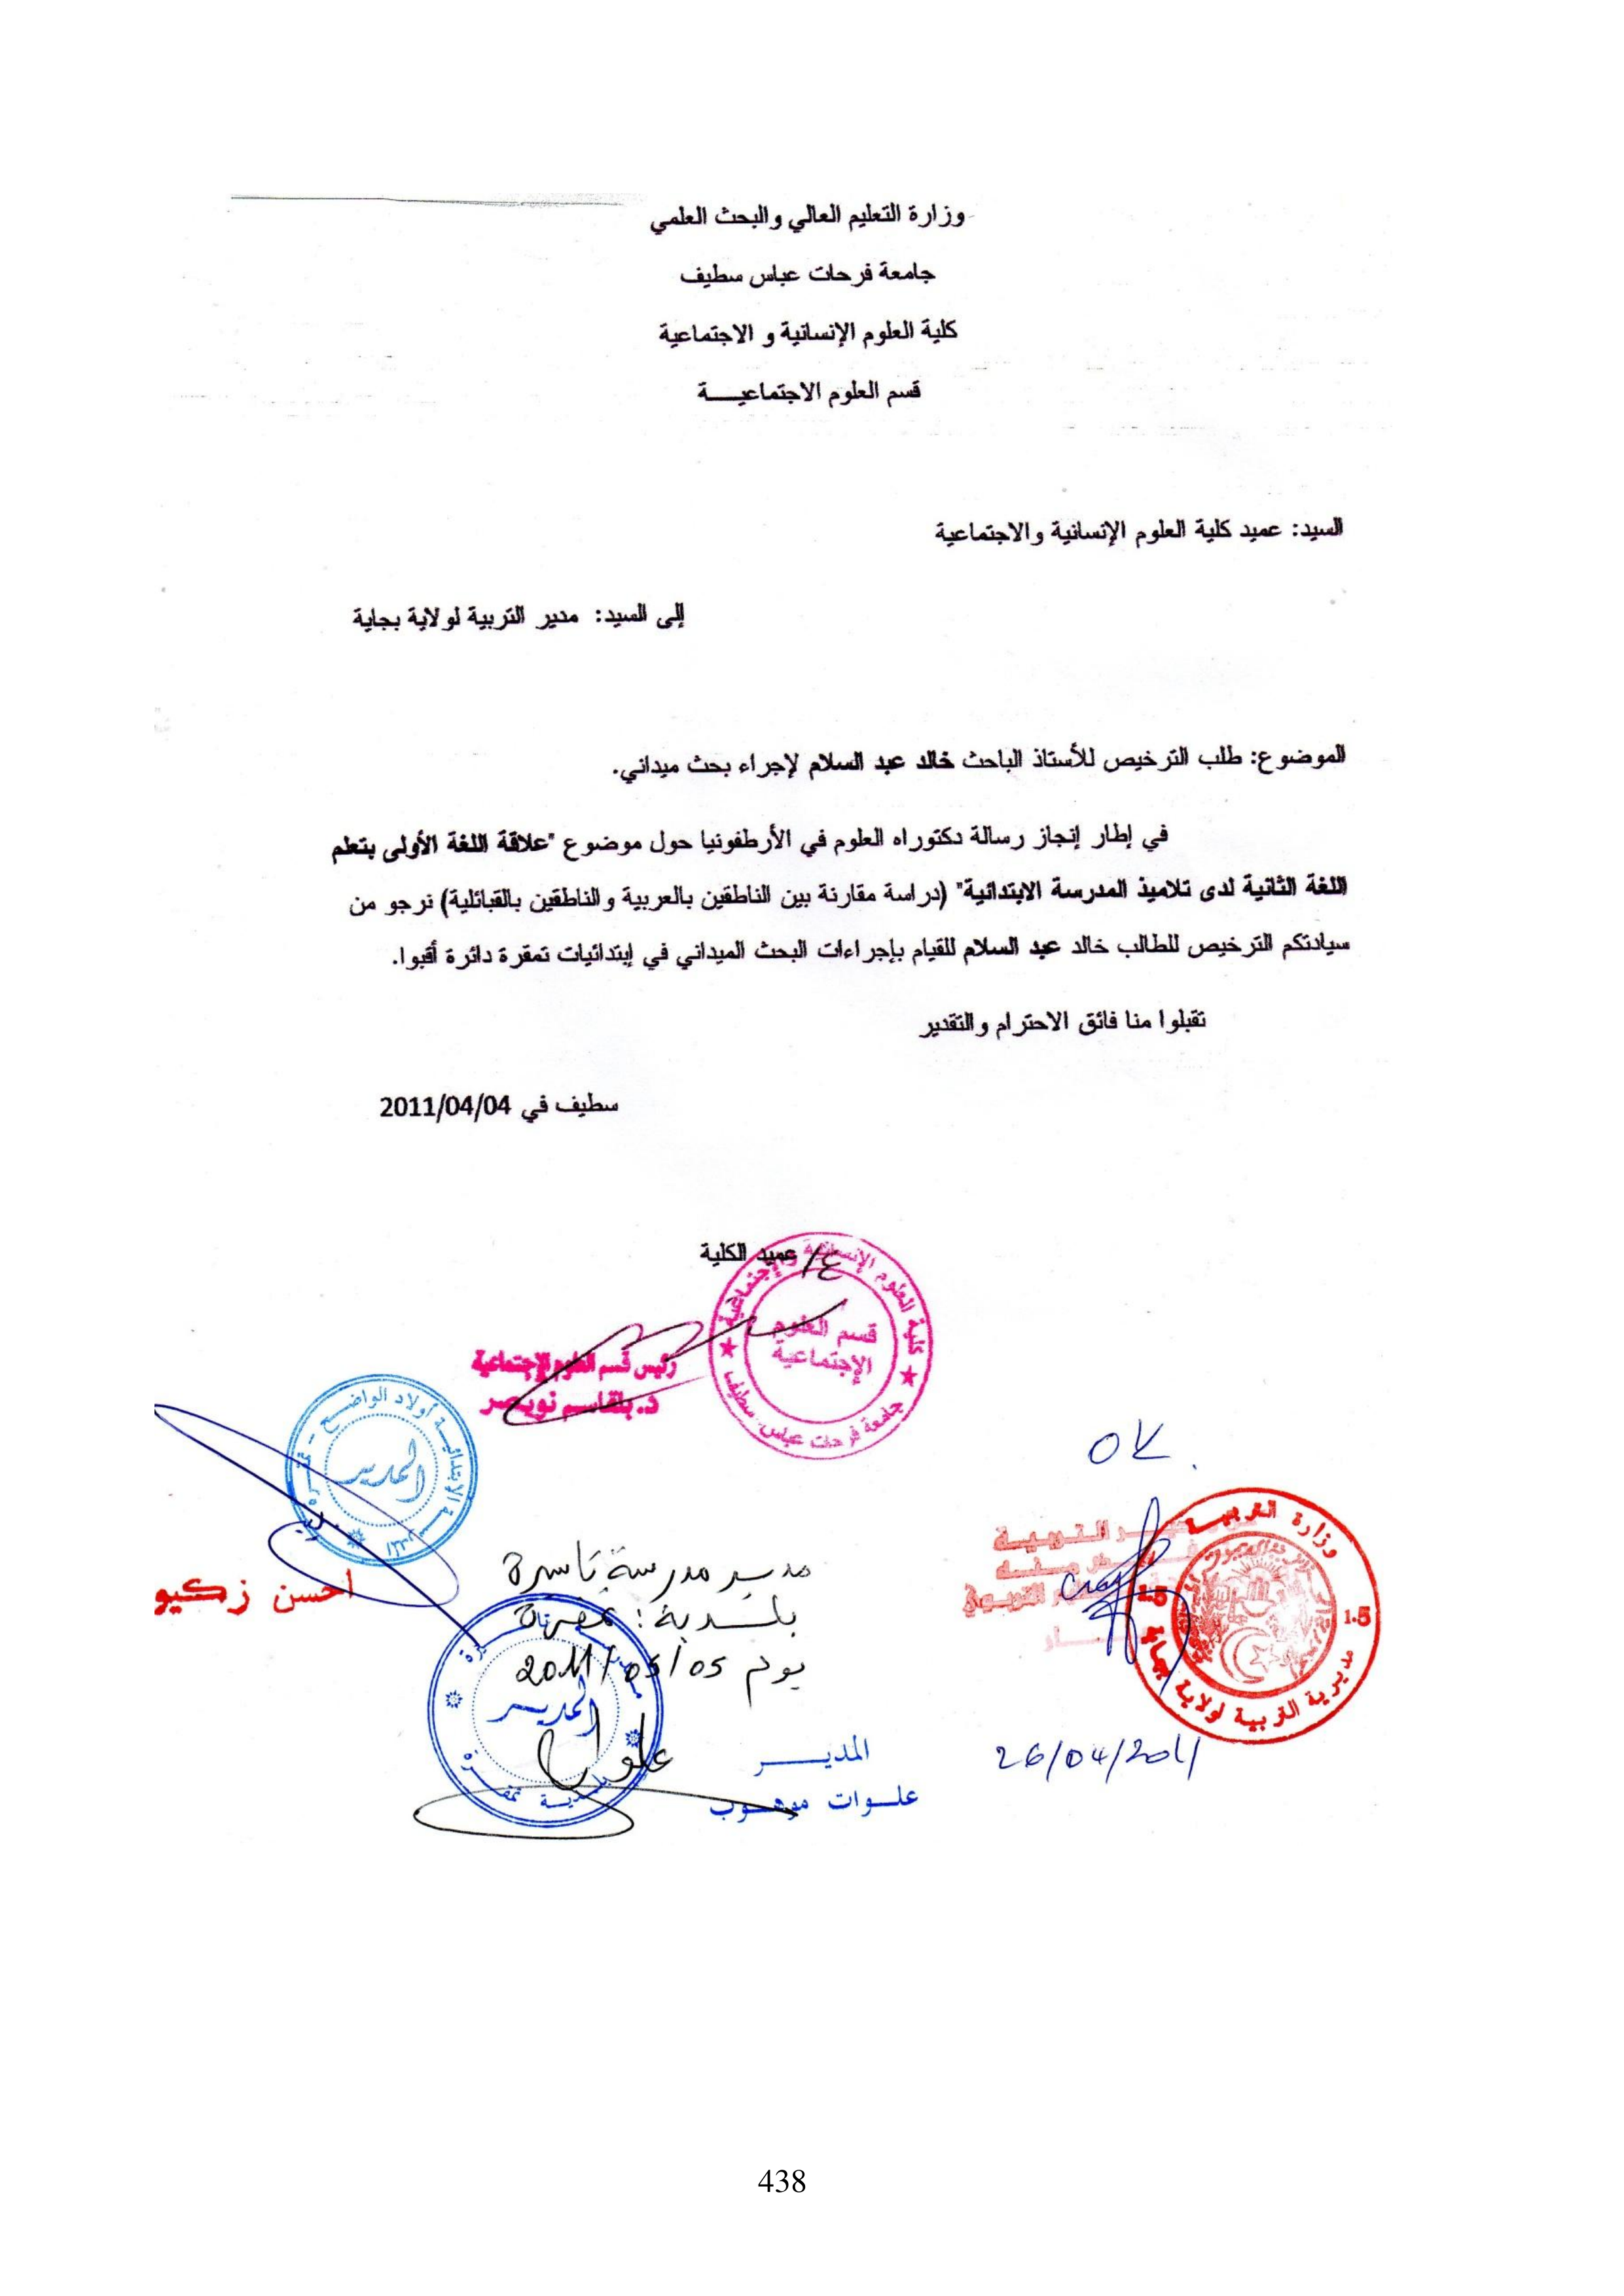 وزارة التعليم العالي والبحث العلمي
جامعة فرحات عباس سطيف
كلية العلوم الإنسانية و الاجتماعية
قسم العلوم الاجتماعيـــــة
السيد: عميد كلية العلوم الإنسانية والاجتماعية
إلى السيد: مدير التربية لولاية بجاية
الموضوع: طلب الترخيص للأستاذ الباحث خالد عبد السلام لإجراء بحث ميداني.
في إطار إنجاز رسالة دكتوراه العلوم في الأرطفونيا حول موضوع "علاقة اللغة الأولى بتعلم
اللغة الثانية لدى تلاميذ المدرسة الابتدائية" (دراسة مقارنة بين الناطقين بالعربية والناطقين بالقبائلية) نرجو من
سيادتكم الترخيص للطالب خالد عبد السلام للقيام بإجراءات البحث الميداني في إبتدائيات تمقرة دائرة أقبوا.
تقبلوا منا فائق الاحترام والتقدير
سطيف في 2011/04/04
ع/ عميد الكلية
كلية العلوم الإنسانية والإجتماعية
قسم العلوم
الإجتماعية
جامعة فرحات عباس. سطيف
رئيس قسم العلوم الإجتماعية
د. بلقاسم نويصر
أولاد الواضح
المدير
احسن زكيو
OK
وزارة التربية
مديرية التربية لولاية بجاية
1.5
1.5
26/04/2011
مدير مدرسة تاسرة
بلدية: تمقرة
يوم 2011/05/05
المدير
بلدية تمقرة
علوات
المديـــــر
علـوات موهـوب
438